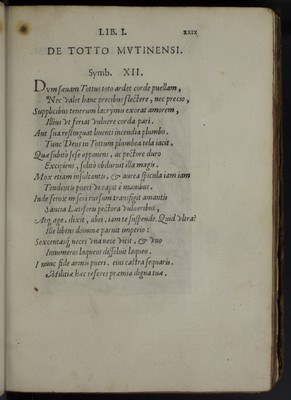 LIB. I. xxix
DE TOTTO MVTINENSI.
Symb. XII.
Dvm sæuam Tottus toto ardet corde puellam,
Nec valet hanc precibus flectere, nec precio,
Supplicibus tenerum lacrymis exorat amorem,
Illius vt feriat vulnere corda pari.
Aut sua restinguat liuenti incendia plumbo.
Tunc Deus in Tottum plumbea tela iacit.
Quæ subitò sese opponens, ac pectore duro
Excipiens, solitò obduruit illa magis.
Mox etiam insultantis, & aurea spicula iam iam
Tendentis pueri è manibus.
Inde ferox in sui rursum transfigit amantis
Saucia pectora vulneribus,
Atq, age, dixit, abei, iam te suspende. Quid vltra?
Ille libens dominæ paruit imperio:
Sexcentasq́ neces vna nece vicit, & vno
Innumeros laqueos dissoluit laqueo.
I nunc fide armis pueri, eius castra sequaris.
Militiæ hæc referes præmia digna tuæ.